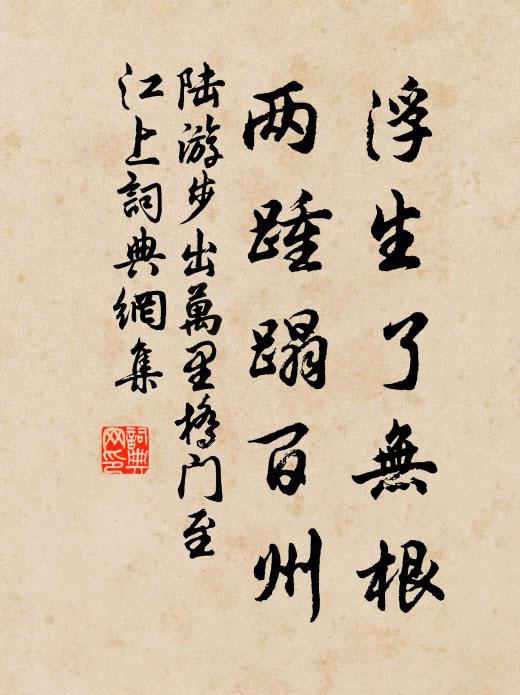 浮生了無根
两踵蹋百州
陆游步出萬里橋门至
江上詞典網集
詞典
网印